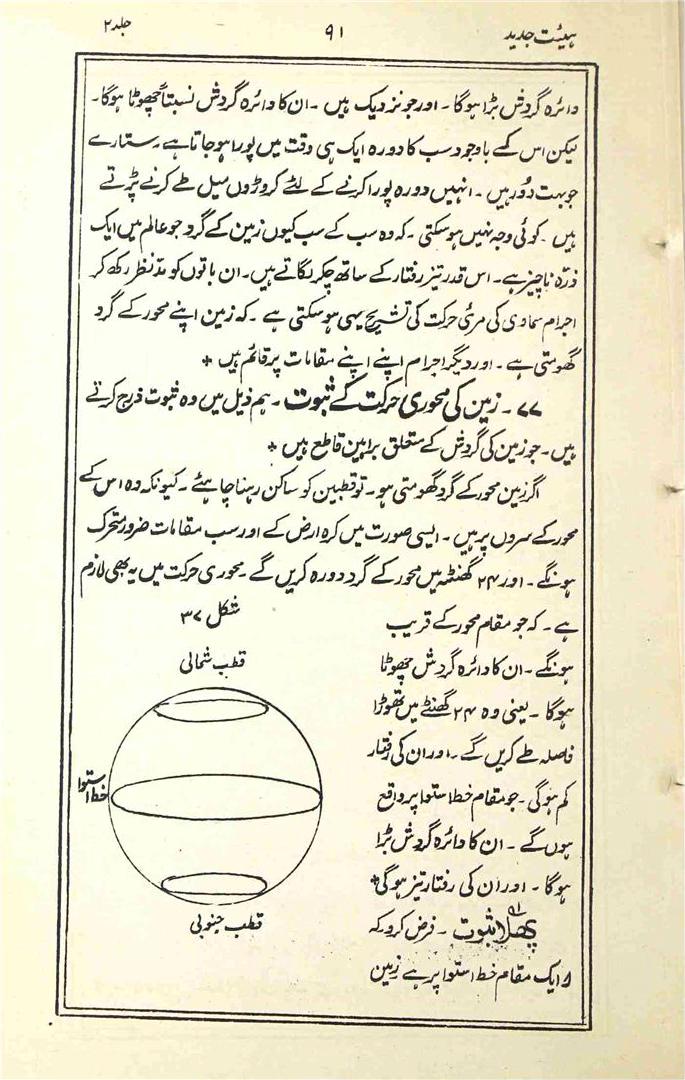 ہیئت جدید ۹۱ جلد ۲
دائرہ گردش بڑا ہوگا۔ اور جو نزدیک ہیں۔ ان کا دائرہ گردش نسبتاً چھوٹا ہوگا۔
لیکن اس کے باوجود سب کا دورہ ایک ہی وقت میں پورا ہو جاتا ہے۔ ستارے
جو بہت دُور ہیں۔ انہیں دورہ پورا کرنے کے لئے کروڑوں میل طے کرنے پڑتے
ہیں۔ کوئی وجہ نہیں ہو سکتی۔ کہ وہ سب کے سب کیوں زمین کے گرد جو عالم میں ایک
ذرّہ ناچیز ہے۔ اس قدر تیز رفتار کے ساتھ چکر لگاتے ہیں۔ ان باتوں کو مدّنظر رکھ کر
اجرام سماوی کی مرئی حرکت کی تشریح یہی ہو سکتی ہے۔ کہ زمین اپنے محور کے گرد
گھومتی ہے۔ اور دیگر اجرام اپنے اپنے مقامات پر قائم ہیں +
۷۷۔ زمین کی محوری حرکت کے ثبوت۔ ہم ذیل میں وہ ثبوت درج کرتے
ہیں۔ جو زمین کی گردش کے متعلق براہین قاطع ہیں +
اگر زمین محور کے گرد گھومتی ہو۔ تو قطبین کو ساکن رہنا چاہئے۔ کیونکہ وہ اس کے
محور کے سروں پر ہیں۔ ایسی صورت میں کرہ ارض کے اور سب مقامات ضرور متحرک
ہونگے۔ اور ۲۴ گھنٹہ میں محور کے گرد دورہ کریں گے۔ محوری حرکت میں یہ بھی لازم
ہے۔ کہ جو مقام محور کے قریب
ہونگے۔ ان کا دائرہ گردش چھوٹا
ہوگا۔ یعنی وہ ۲۴ گھنٹے میں تھوڑا
فاصلہ طے کریں گے۔ اور ان کی رفتار
کم ہوگی۔ جو مقام خط استوا پر واقع
ہوں گے۔ ان کا دائرہ گردش بڑا
ہوگا۔ اور ان کی رفتار تیز ہوگی +
پہلا ثبوت۔ فرض کرو کہ
ا ایک مقام خط استوا پر ہے زمین
شکل ۳۷
قطب شمالی
خط استوا
قطب جنوبی